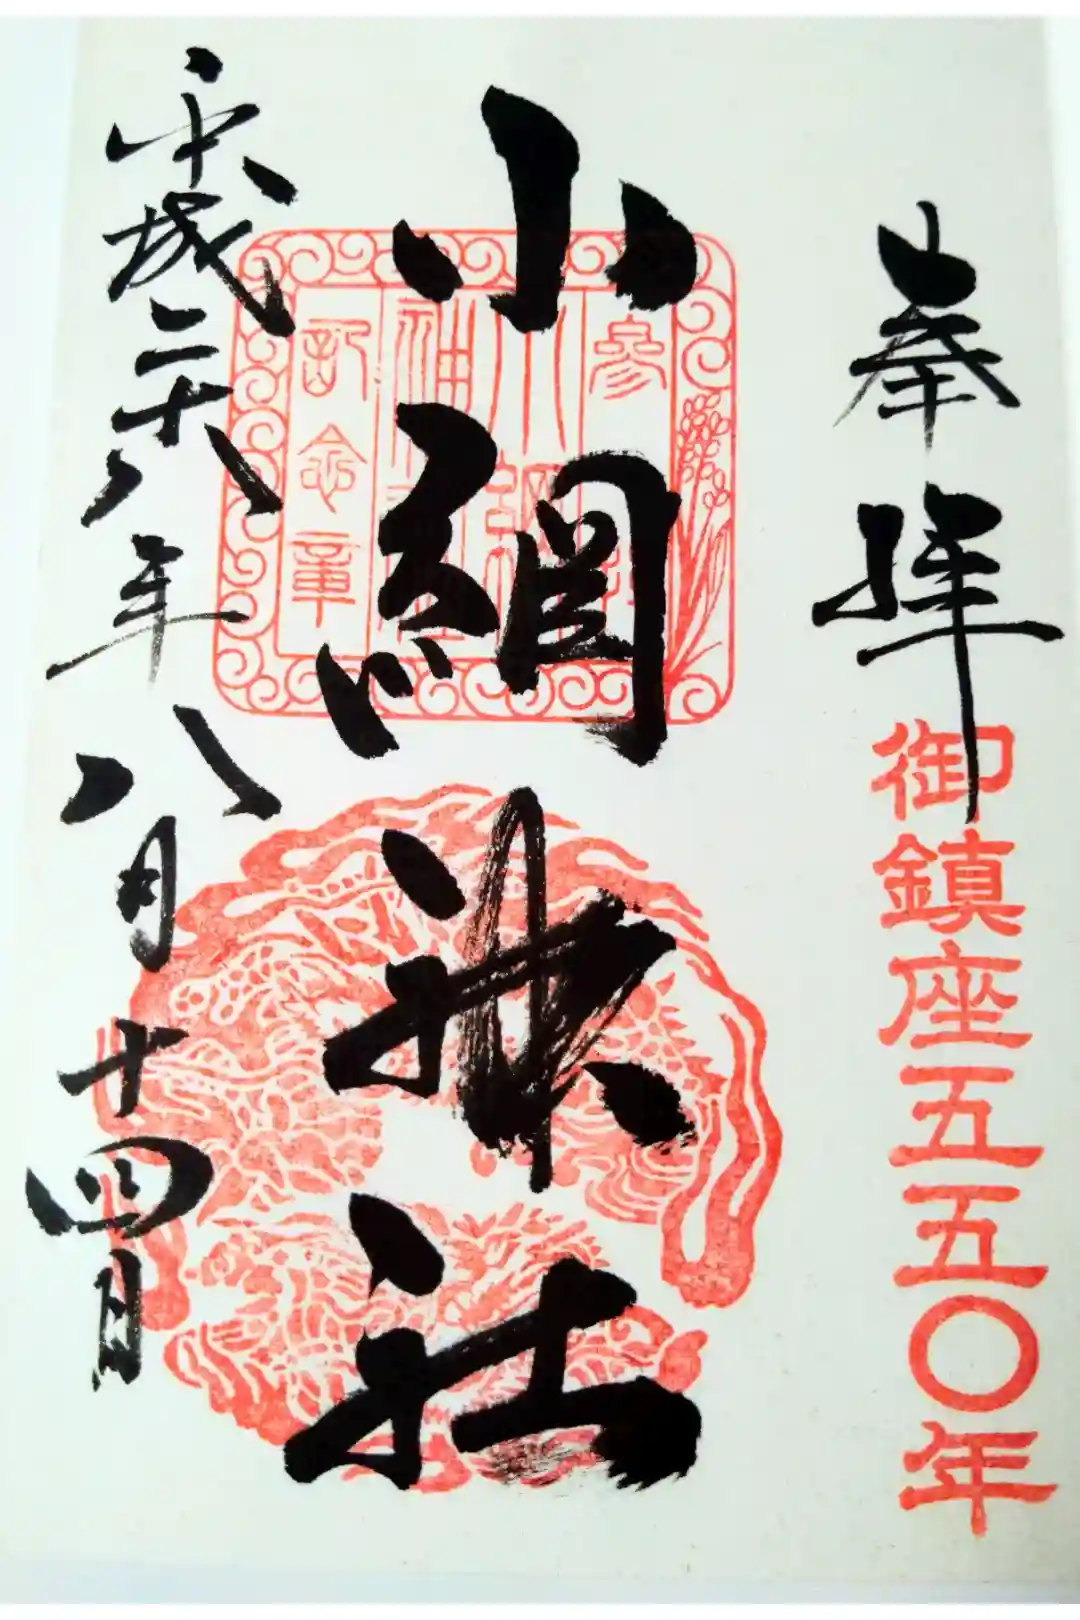 奉拝
御鎮座五五〇年
小網神社
參拝
小網神社
記念章
平成二十八年八月十四日